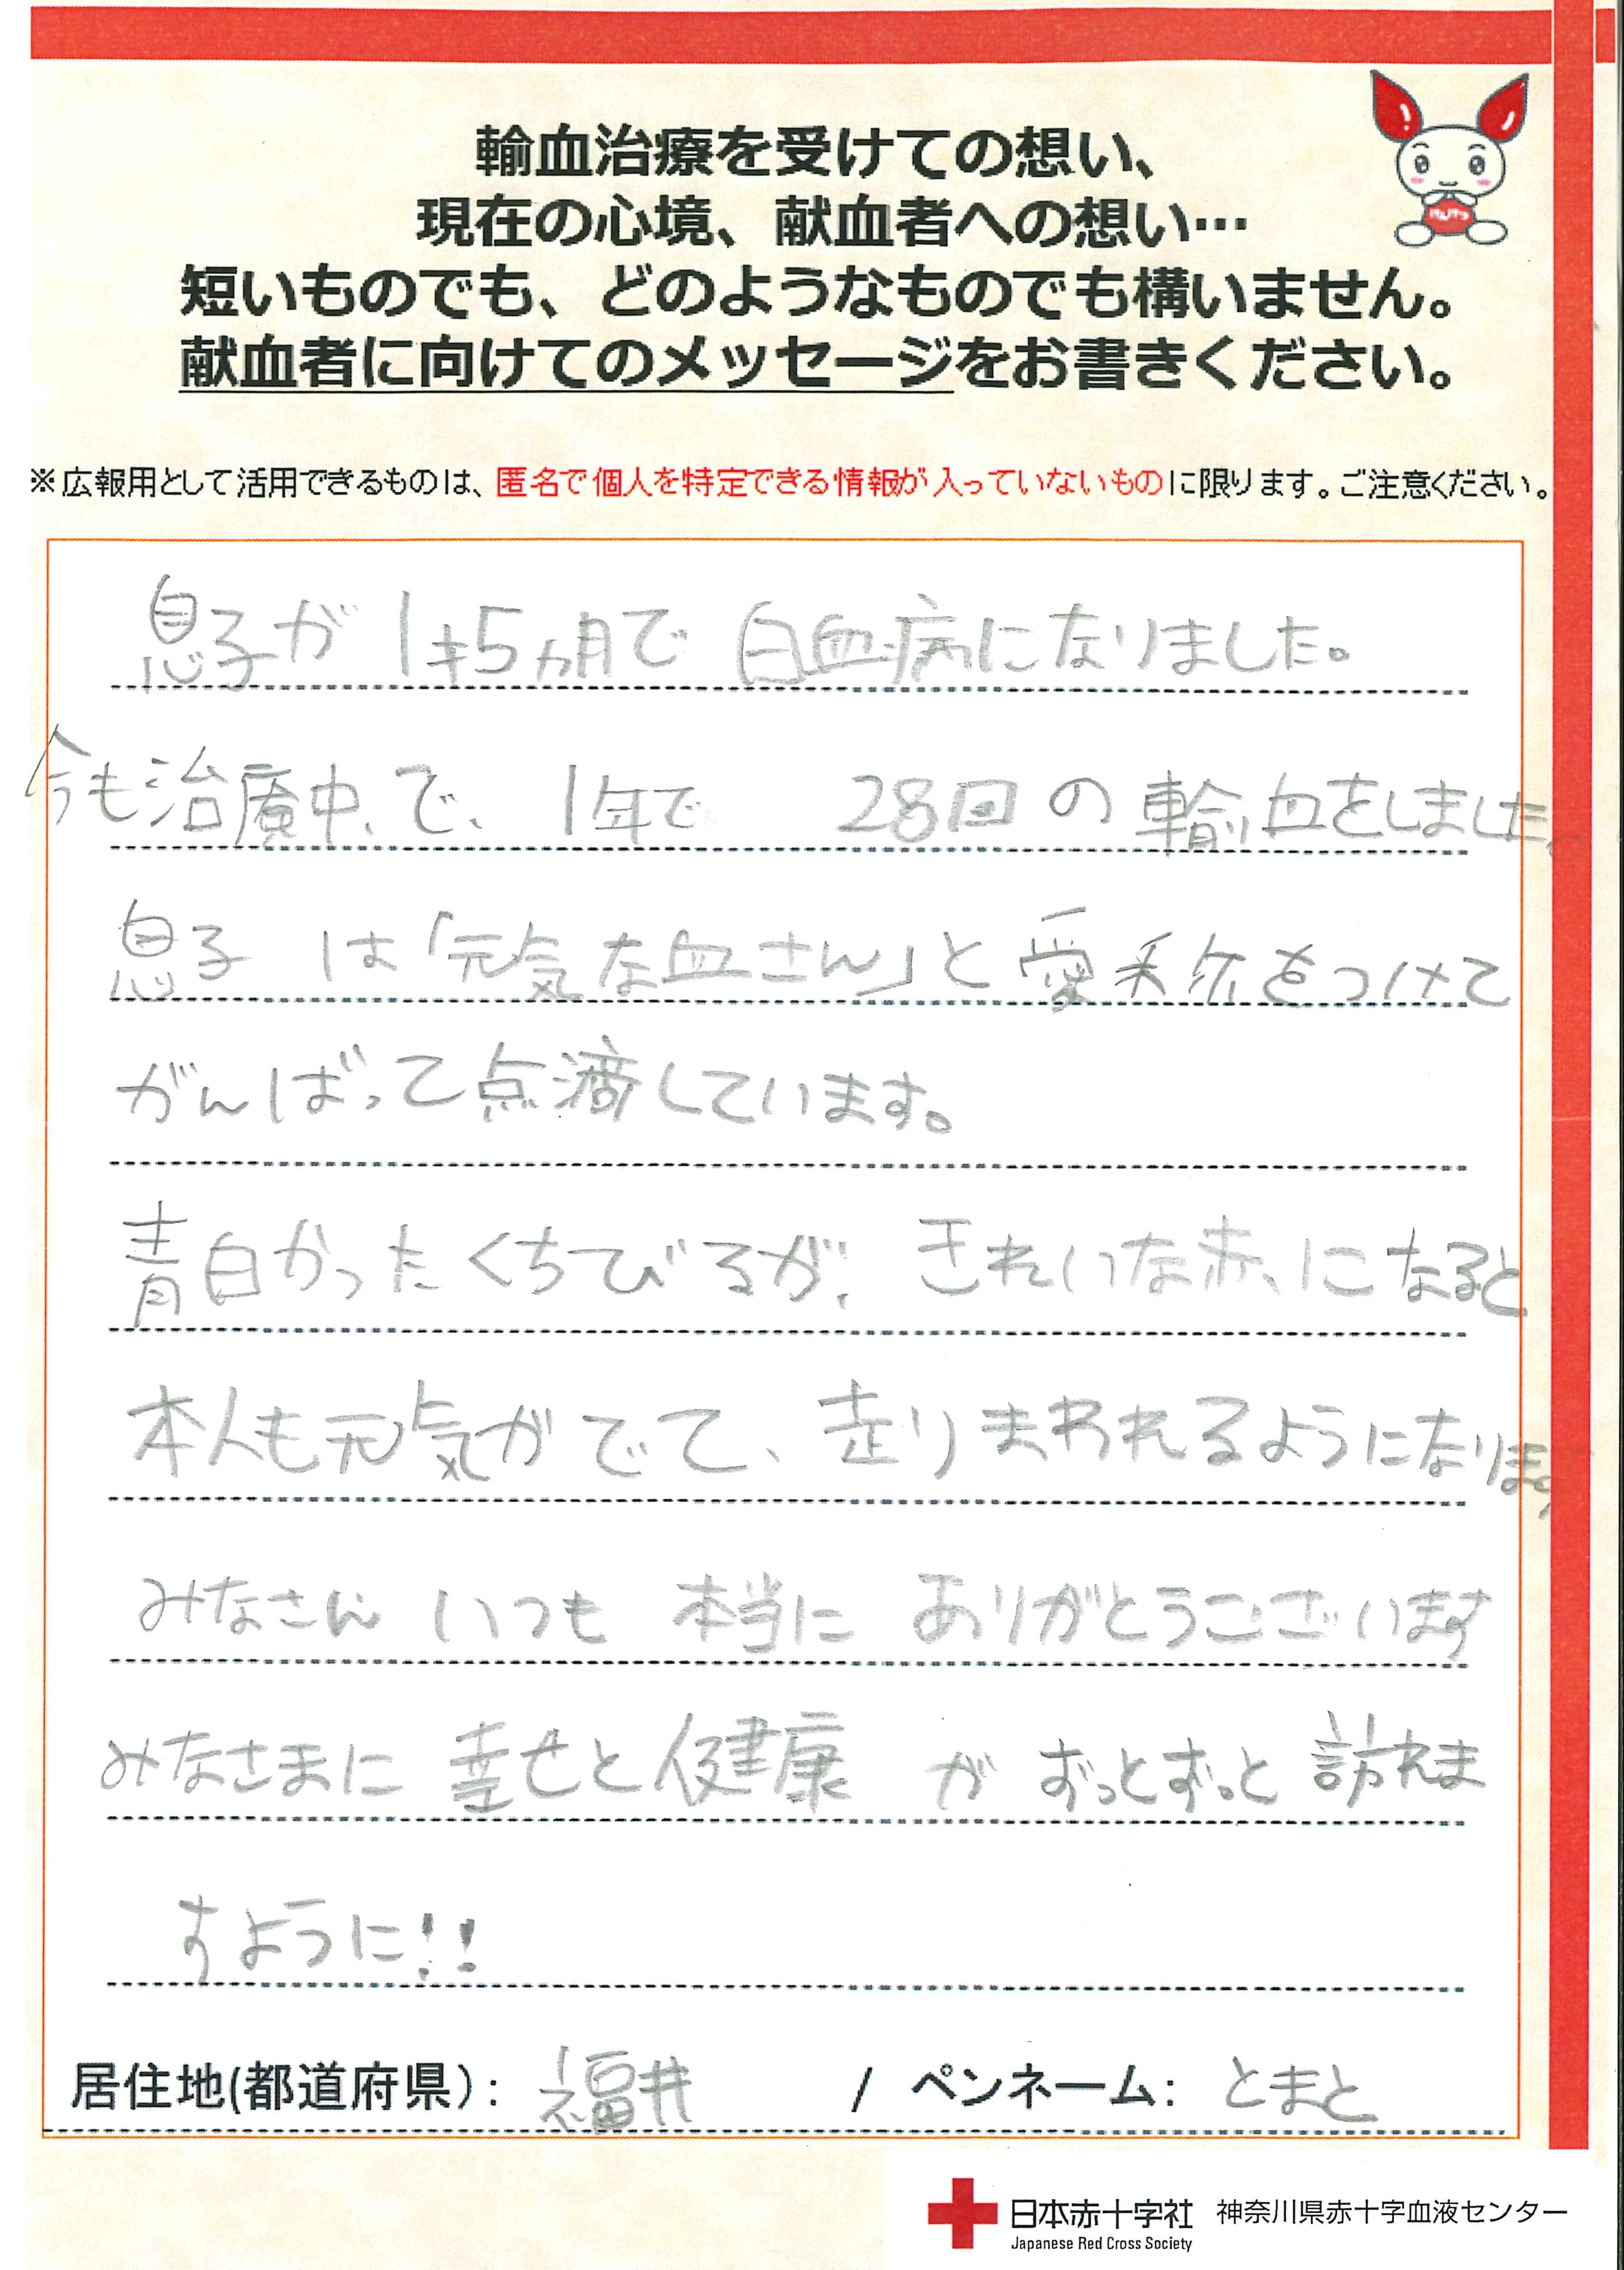 輸血治療を受けての想い、
現在の心境、献血者への想い…
短いものでも、どのようなものでも構いません。
献血者に向けてのメッセージをお書きください。
けんけつ
※広報用として活用できるものは、匿名で個人を特定できる情報が入っていないものに限ります。ご注意ください。
息子が 1才5ヵ月で 白血病になりました。
今も治療中で、1年で 28回の輸血をしました。
息子は「元気な血さん」と愛称をつけて
がんばって点滴しています。
青白かったくちびるが、きれいな赤になると
本人も元気がでて、走りまわれるようになります
みなさん いつも 本当に ありがとうございます
みなさまに 幸せと健康 が ずっとずっと 訪れま
すように!!
居住地(都道府県): 福井 / ペンネーム: とまと
日本赤十字社 神奈川県赤十字血液センター
Japanese Red Cross Society